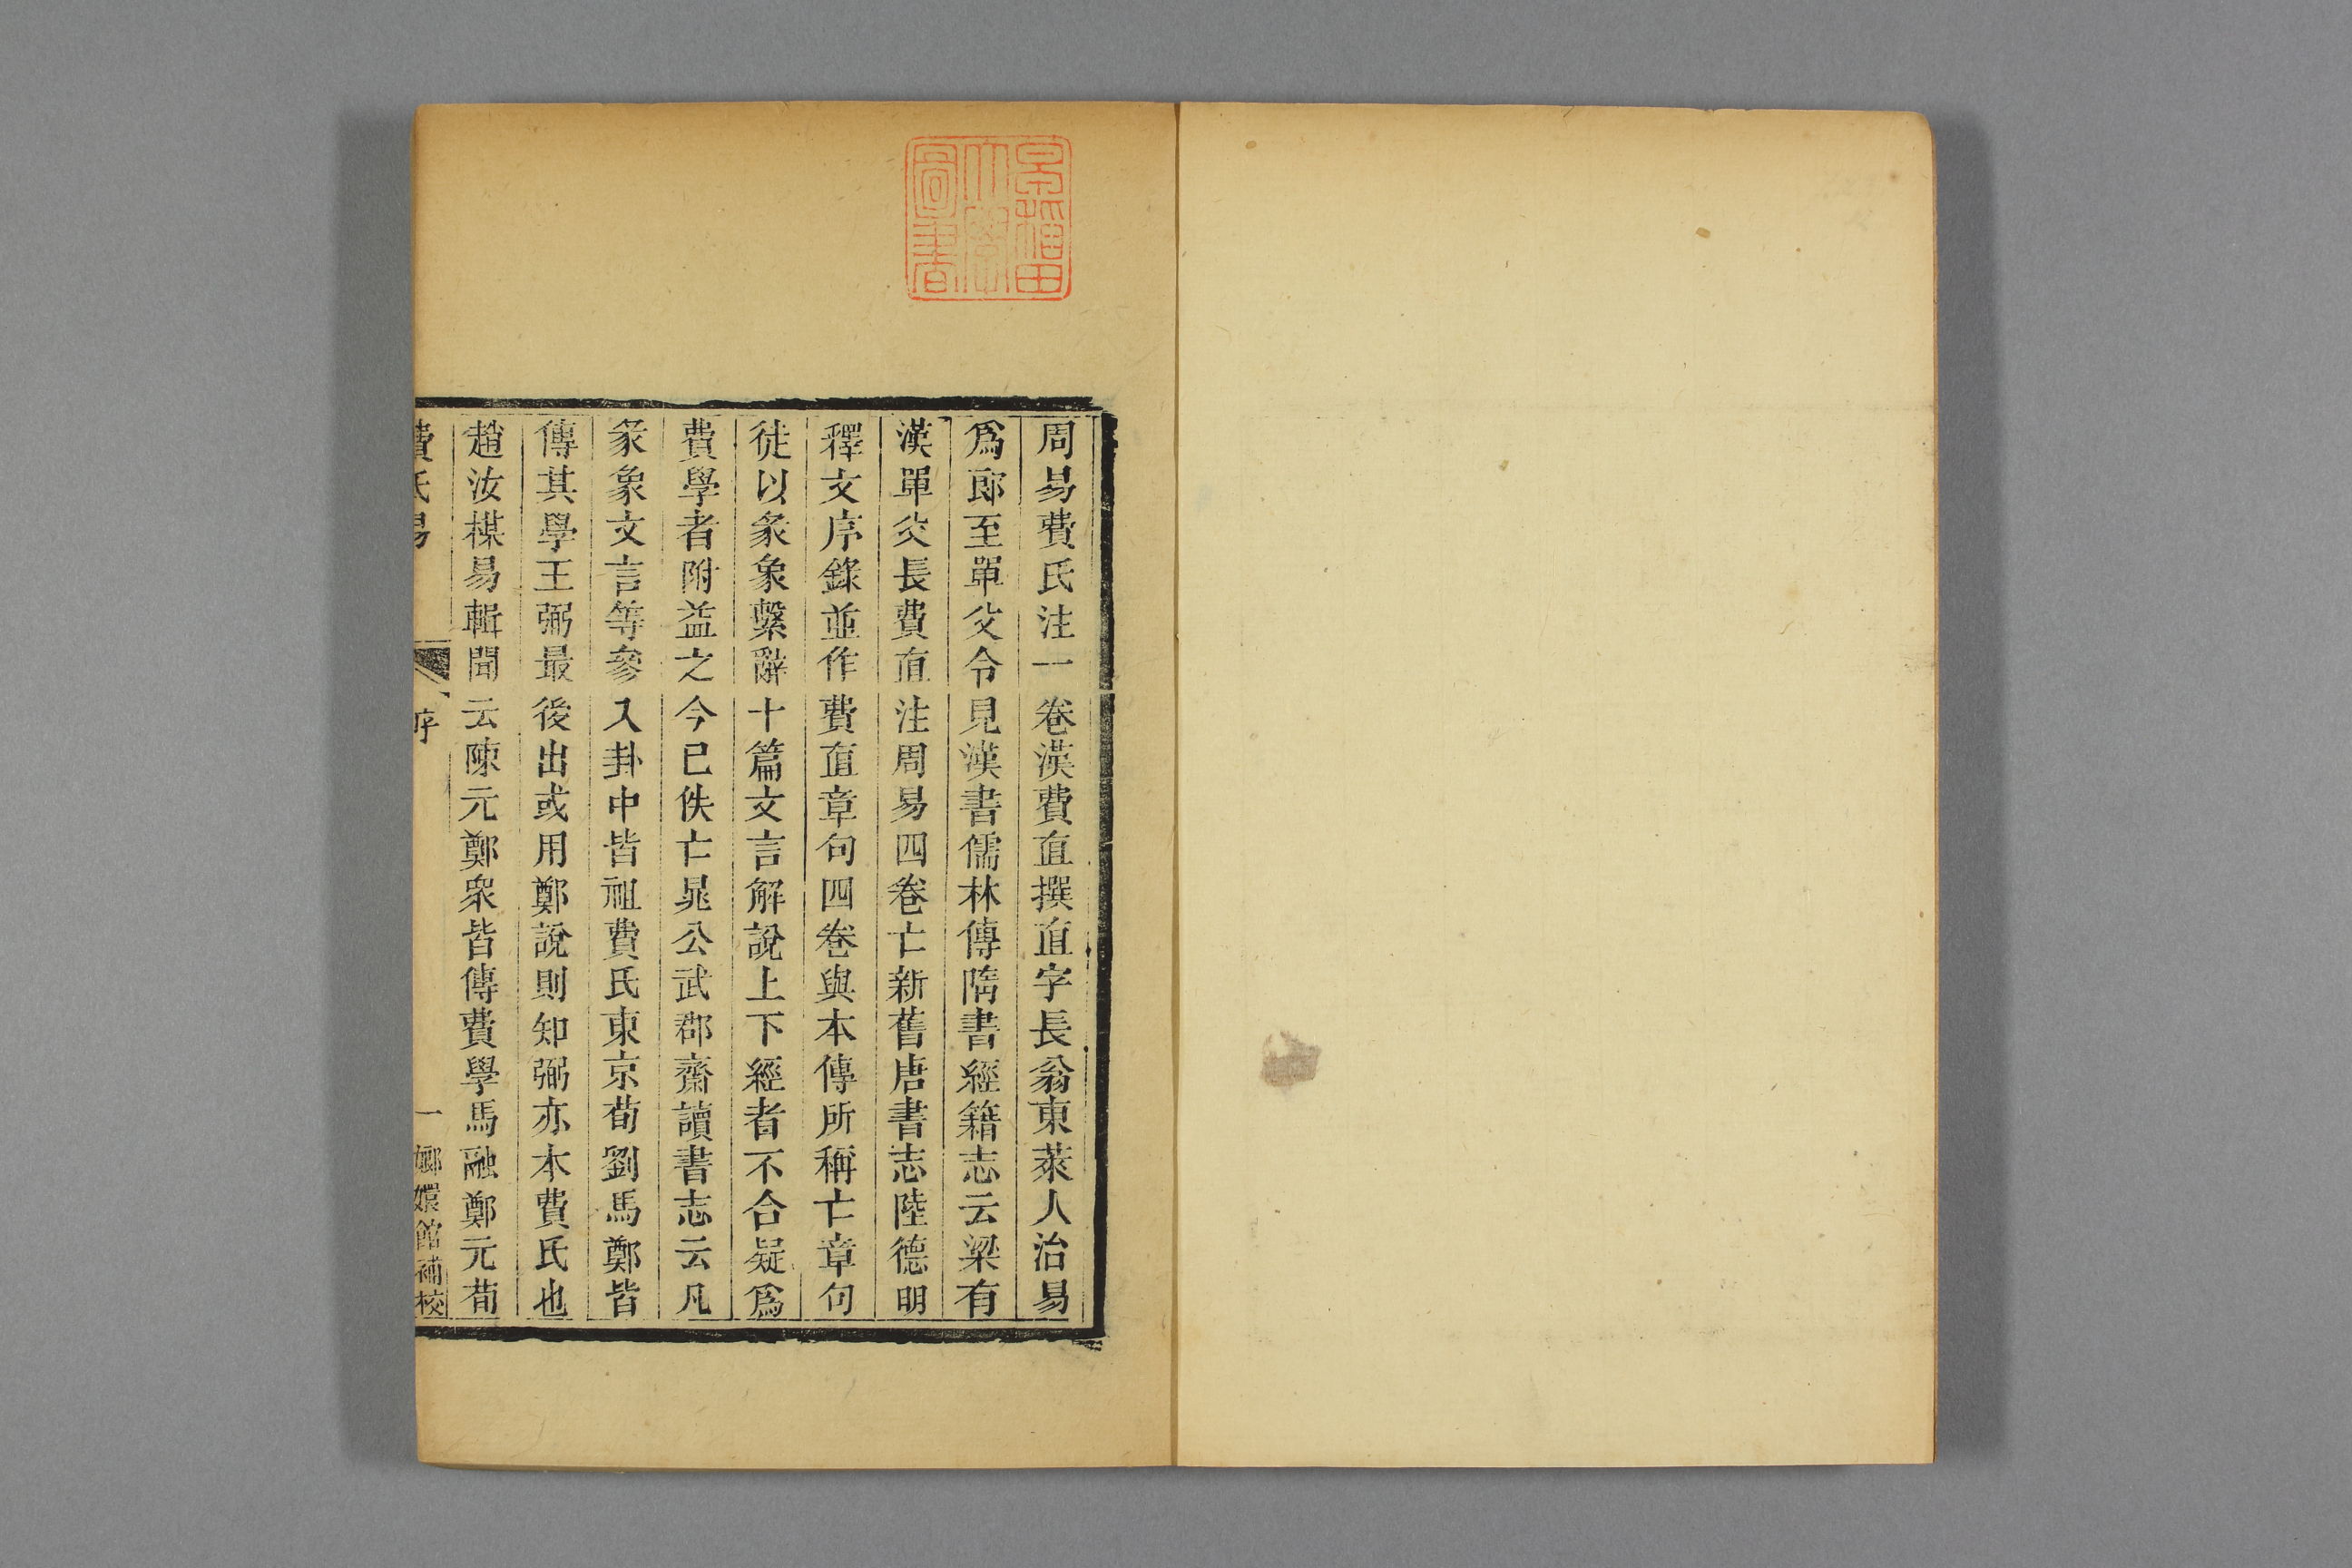 早稲田
大學
圖書
周易費氏注一卷漢費直撰直字長翁東萊人治易
爲郎至單父令見漢書儒林傳隋書經籍志云梁有
漢單父長費直注周易四卷亡新舊唐書志陸德明
釋文序錄並作費直章句四卷與本傳所稱亡章句
徒以彖象繫辭十篇文言解說上下經者不合疑爲
費學者附益之今已佚亡晁公武郡齋讀書志云凡
彖象文言等參入卦中皆祖費氏東京荀劉馬鄭皆
傳其學王弼最後出或用鄭說則知弼亦本費氏也
趙汝楳易輯聞云陳元鄭眾皆傳費學馬融鄭元荀
費氏易 序 一 嫏嬛館補校